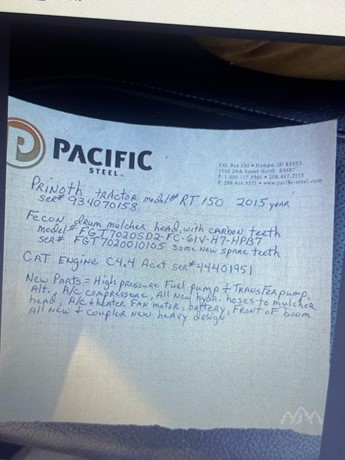 PACIFIC
STEEL
P.O. Box
Nampa, ID 83653
www.pacific-steel.com
Prinoth tractor model# RT 150 2015 year
ser# 934070158
Fecon drum mulcher head with carbon teeth
model# FGT7020SD2-FC-61V-H7-HPB7
ser# FGT7020010105 some new spare teeth
CAT Engine C4.4 Acet ser# 44401951
New Parts = High pressure Fuel pump + Transfer pump
Alt., A/C compressor, All New hydr. hoses to mulcher
head, A/C + heater FAN motor, battery, FRONT OF boom
all new + coupler new heavy design